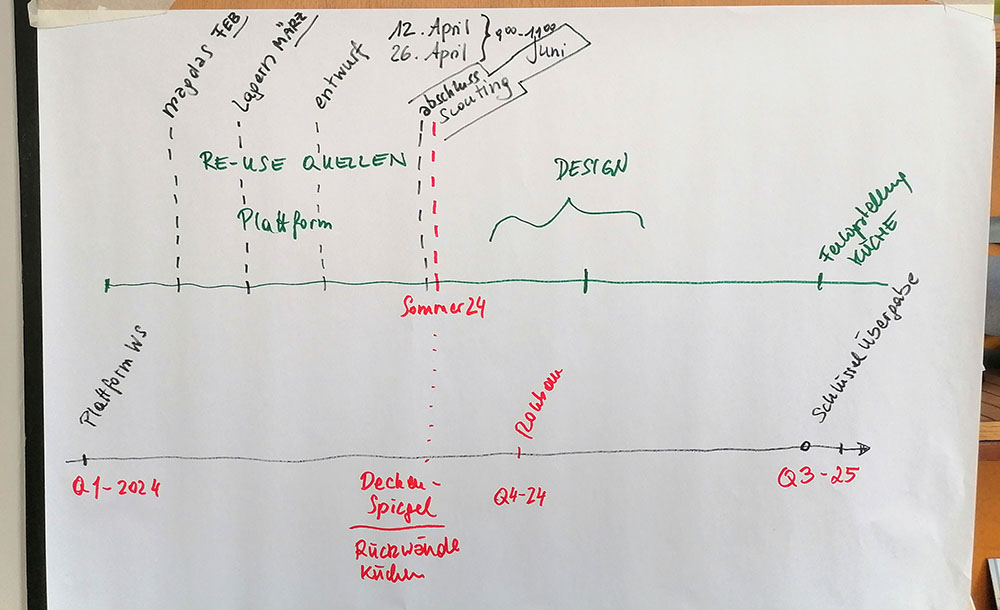 magdas FEB
Lagern MÄRZ
entwurf
12. April
26. April
9⁰⁰-11⁰⁰
Juni
abschluss
Scouting
RE-USE QUELLEN
Plattform
DESIGN
Fertigstellung
KÜCHE
Sommer 24
Plattform WS
Rohbau
Schlüsselübergabe
Q1-2024
Decken-
Spiegel
Rückwände
Küchen
Q4-24
Q3-25